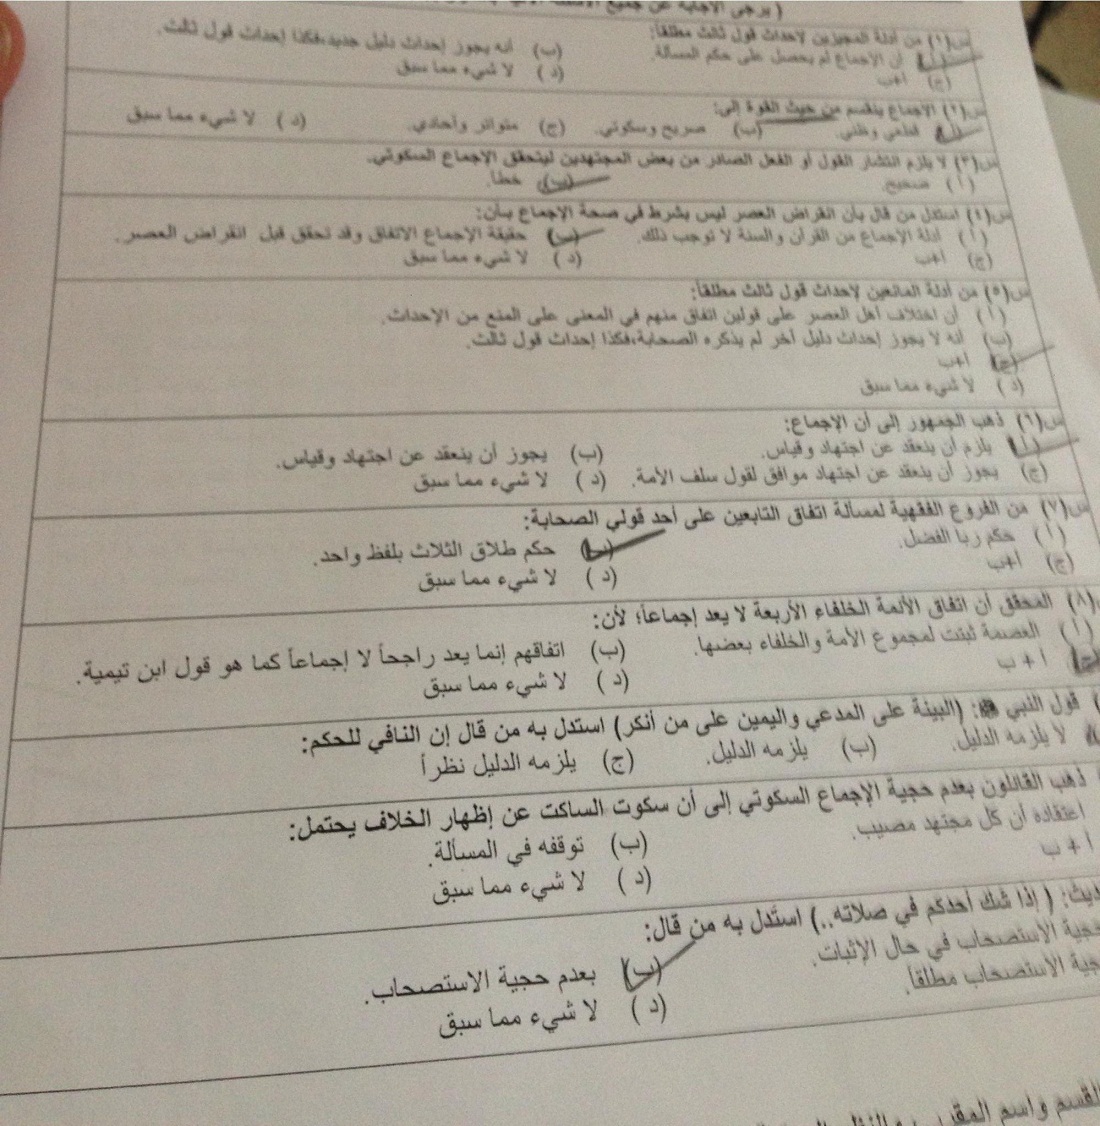 (يرجى الإجابة عن جميع الأسئلة
س(١) من أدلة المجيزين لإحداث قول ثالث مطلقاً:
(أ) أن الإجماع لم يحصل على حكم المسألة. (ب) أنه يجوز إحداث دليل جديد،فكذا إحداث قول ثالث.
(ج) أ+ب (د) لا شيء مما سبق
س(٢) الإجماع ينقسم من حيث القوة إلى:
(أ) قطعي وظني. (ب) صريح وسكوتي. (ج) متواتر وآحادي. (د) لا شيء مما سبق
س(٣) لا يلزم انتشار القول أو الفعل الصادر من بعض المجتهدين ليتحقق الإجماع السكوتي.
(أ) صحيح. (ب) خطأ.
س(٤) استدل من قال بأن انقراض العصر ليس بشرط في صحة الإجماع بأن:
(أ) أدلة الإجماع من القرآن والسنة لا توجب ذلك. (ب) حقيقة الإجماع الاتفاق وقد تحقق قبل انقراض العصر.
(ج) أ+ب (د) لا شيء مما سبق
س(٥) من أدلة المانعين لإحداث قول ثالث مطلقاً:
(أ) أن اختلاف أهل العصر على قولين اتفاق منهم في المعنى على المنع من الإحداث.
(ب) أنه لا يجوز إحداث دليل آخر لم يذكره الصحابة،فكذا إحداث قول ثالث.
(ج) أ+ب
(د) لا شيء مما سبق
س(٦) ذهب الجمهور إلى أن الإجماع:
(أ) يلزم أن ينعقد عن اجتهاد وقياس. (ب) يجوز أن ينعقد عن اجتهاد وقياس.
(ج) يجوز أن ينعقد عن اجتهاد موافق لقول سلف الأمة. (د) لا شيء مما سبق
س(٧) من الفروع الفقهية لمسألة اتفاق التابعين على أحد قولي الصحابة:
(أ) حكم ربا الفضل. (ب) حكم طلاق الثلاث بلفظ واحد.
(ج) أ+ب (د) لا شيء مما سبق
(٨) المحقق أن اتفاق الأئمة الخلفاء الأربعة لا يعد إجماعاً؛ لأن:
(أ) العصمة ثبتت لمجموع الأمة والخلفاء بعضها. (ب) اتفاقهم إنما يعد راجحاً لا إجماعاً كما هو قول ابن تيمية.
(ج) أ + ب (د) لا شيء مما سبق
) قول النبي ﷺ: (البينة على المدعي واليمين على من أنكر) استدل به من قال إن النافي للحكم:
لا يلزمه الدليل. (ب) يلزمه الدليل. (ج) يلزمه الدليل نظراً
ذهب القائلون بعدم حجية الإجماع السكوتي إلى أن سكوت الساكت عن إظهار الخلاف يحتمل:
اعتقاده أن كل مجتهد مصيب. (ب) توقفه في المسألة.
أ + ب (د) لا شيء مما سبق
ديث: (إذا شك أحدكم في صلاته..) استدل به من قال:
حجية الاستصحاب في حال الإثبات. (ب) بعدم حجية الاستصحاب.
جية الاستصحاب مطلقاً. (د) لا شيء مما سبق
القسم واسم المقرر